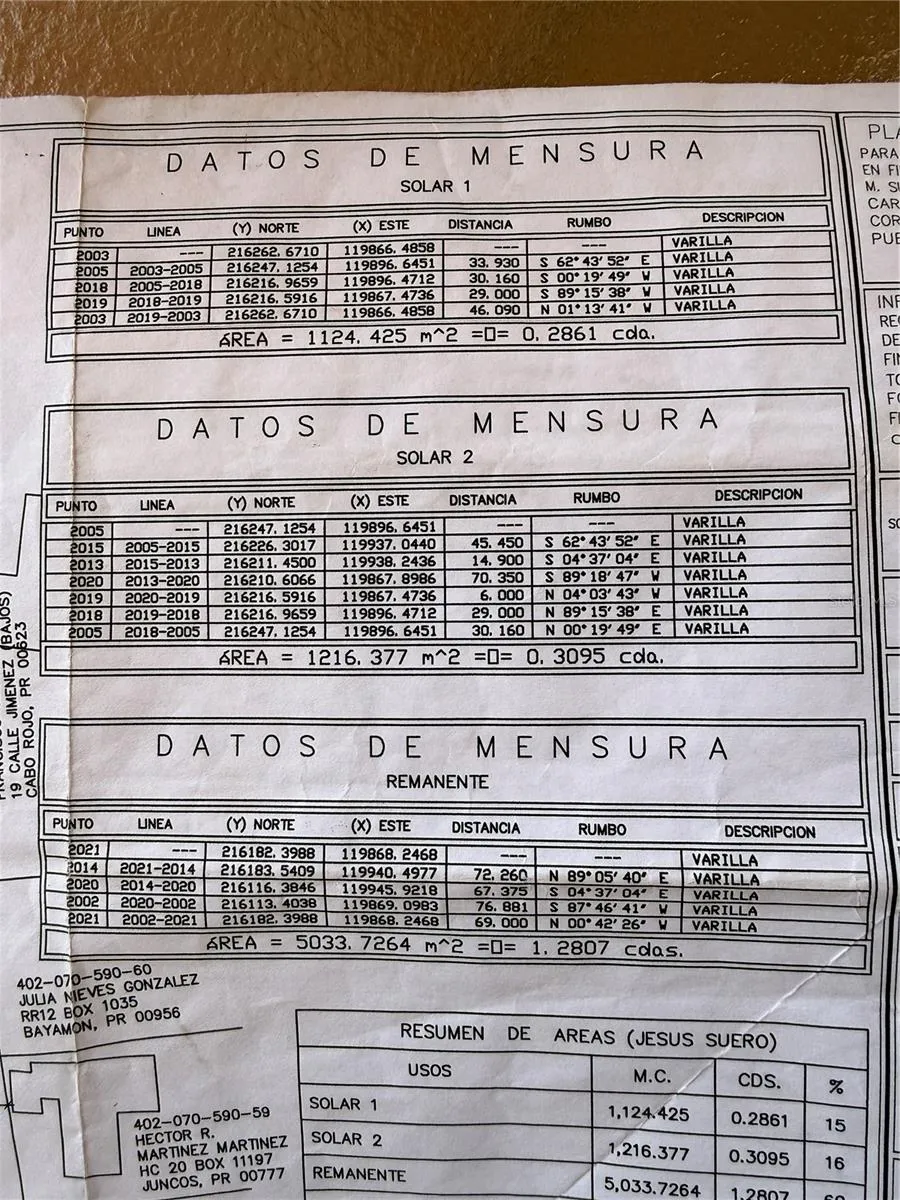 DATOS DE MENSURA
SOLAR 1
PUNTO LINEA (Y) NORTE (X) ESTE DISTANCIA RUMBO DESCRIPCION
2003 --- 216262.6710 119866.4858 --- --- VARILLA
2005 2003-2005 216247.1254 119896.6451 33.930 S 62°43'52" E VARILLA
2018 2005-2018 216216.9659 119896.4712 30.160 S 00°19'49" W VARILLA
2019 2018-2019 216216.5916 119867.4736 29.000 S 89°15'38" W VARILLA
2003 2019-2003 216262.6710 119866.4858 46.090 N 01°13'41" W VARILLA
ÁREA = 1124.425 m^2 =□= 0.2861 cda.
DATOS DE MENSURA
SOLAR 2
PUNTO LINEA (Y) NORTE (X) ESTE DISTANCIA RUMBO DESCRIPCION
2005 --- 216247.1254 119896.6451 --- --- VARILLA
2015 2005-2015 216226.3017 119937.0440 45.450 S 62°43'52" E VARILLA
2013 2015-2013 216211.4500 119938.2436 14.900 S 04°37'04" E VARILLA
2020 2013-2020 216210.6066 119867.8986 70.350 S 89°18'47" W VARILLA
2019 2020-2019 216216.5916 119867.4736 6.000 N 04°03'43" W VARILLA
2018 2019-2018 216216.9659 119896.4712 29.000 N 89°15'38" E VARILLA
2005 2018-2005 216247.1254 119896.6451 30.160 N 00°19'49" E VARILLA
ÁREA = 1216.377 m^2 =□= 0.3095 cda.
DATOS DE MENSURA
REMANENTE
PUNTO LINEA (Y) NORTE (X) ESTE DISTANCIA RUMBO DESCRIPCION
2021 --- 216182.3988 119868.2468 --- --- VARILLA
2014 2021-2014 216183.5409 119940.4977 72.260 N 89°05'40" E VARILLA
2020 2014-2020 216116.3846 119945.9218 67.375 S 04°37'04" E VARILLA
2002 2020-2002 216113.4038 119869.0983 76.881 S 87°46'41" W VARILLA
2021 2002-2021 216182.3988 119868.2468 69.000 N 00°42'26" W VARILLA
ÁREA = 5033.7264 m^2 =□= 1.2807 cdas.
19 CALLE JIMENEZ (BAJOS)
CABO ROJO, PR 00623
402-070-590-60
JULIA NIEVES GONZALEZ
RR12 BOX 1035
BAYAMON, PR 00956
402-070-590-59
HECTOR R.
MARTINEZ MARTINEZ
HC 20 BOX 11197
JUNCOS, PR 00777
RESUMEN DE AREAS (JESUS SUERO)
USOS M.C. CDS. %
SOLAR 1 1,124.425 0.2861 15
SOLAR 2 1,216.377 0.3095 16
REMANENTE 5,033.7264 1.2807
PARA
EN
M.